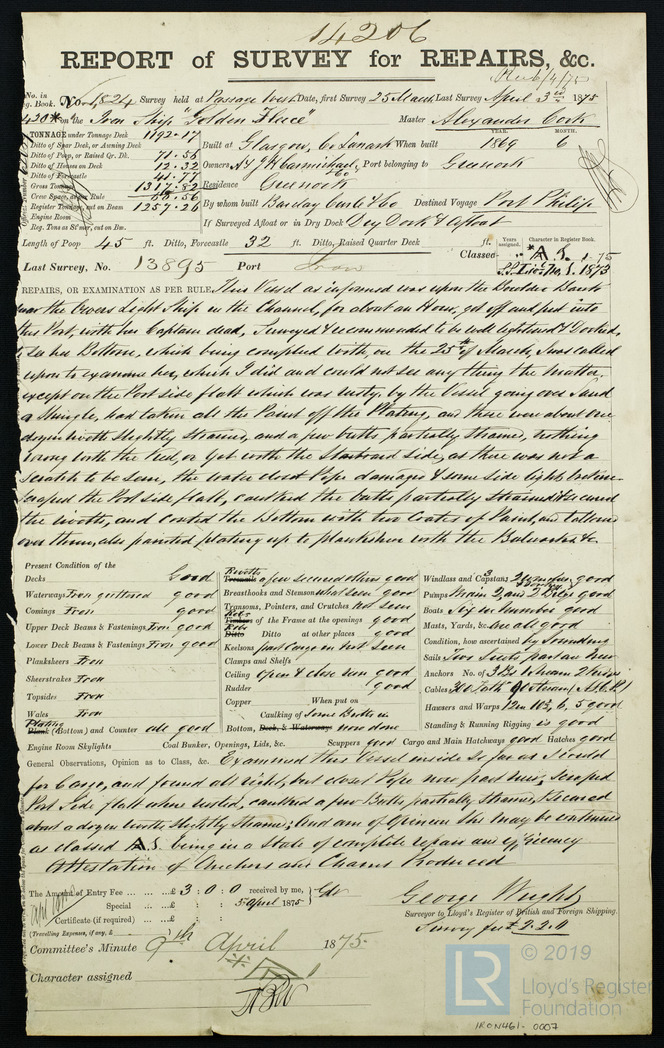 14206
REPORT of SURVEY for REPAIRS, &c.
Rec 6/4/75
No. in Reg. Book. No. 1824 Survey held at Passage West Date, first Survey 25 March Last Survey April 3rd 1875
420* on the Iron Ship "Golden Fleece" Master Alexander Cork
TONNAGE under Tonnage Deck 1192.17
Ditto of Spar Deck, or Awning Deck
Ditto of Poop, or Raised Qr. Dk. 71.56
Ditto of Houses on Deck 12.32
Ditto of Forecastle 41.77
Gross Tonnage 1317.82
Crew Space, as per Rule
Register Tonnage, cut on Beam 1257.26
Engine Room
Reg. Tons as St'mr, cut on Bm.
Built at Glasgow, Co Lanark When built YEAR. 1869 MONTH. 6
Owners A & J H Carmichael & Co Port belonging to Greenock
Residence Greenock
By whom built Barclay Curle & Co Destined Voyage Port Philip
If Surveyed Afloat or in Dry Dock Dry Dock & Afloat
Length of Poop 45 ft. Ditto, Forecastle 32 ft. Ditto, Raised Quarter Deck ft.
Years assigned. Character in Register Book.
Last Survey, No. 13895 Port Classed
REPAIRS, OR EXAMINATION AS PER RULE, This Vessel as informed was upon the Boulder Bank
near the Owers Light Ship in the Channel, for about an Hour, got off and put into
this Port, with her Captain dead, I surveyed & recommended to be well lightened & Docked,
to see her Bottom, which being complied with, on the 25th of March, I was called
upon to examine her, which I did and could not see any thing the matter,
except on the Port side flatt which was rusty, by the Vessel going over Sand
& Shingle, had taken all the Paint off the Plating, and there were about one
dozen rivets slightly strained, and a few butts partially strained, nothing
wrong with the Keel, or yet with the Starboard side, as there was not a
scratch to be seen, the water closet Pipe damaged & some side lights broken
scraped the Port side flatt, caulked the butts partially strained & secured
the rivets, and coated the Bottom with two Coats of Paint, and tallow
over them, also painted plating up to planksheer with the Bulwarks &c.
Present Condition of the
Decks Good
Waterways Iron guttered good
Comings Iron good
Upper Deck Beams & Fastenings Iron good
Lower Deck Beams & Fastenings Iron good
Planksheers Iron
Sheerstrakes Iron
Topsides Iron
Wales Iron
Plating Plank (Bottom) and Counter all good
Engine Room Skylights
Rivets Treenails a few secured others good
Breasthooks and Stemson what seen good
Transoms, Pointers, and Crutches not seen
Timbers of the Frame at the openings good
Ditto Ditto at other places good
Keelsons part Cargo in not seen
Clamps and Shelfs
Ceiling open & close seen good
Rudder good
Copper When put on
Caulking of Some Butts in
Bottom, Deck, & Waterways now done
Coal Bunker, Openings, Lids, &c.
Scuppers good Cargo and Main Hatchways good Hatches good
Windlass and Capstans 3 good
Pumps good
Boats Six in number good
Masts, Yards, &c. are all good
Condition, how ascertained by Sounding
Sails Two Suits part are New
Anchors No. of 3 Bs 1 Stream 2 Kedges
Cables 300 Fath
Hawsers and Warps good
Standing & Running Rigging is good
General Observations, Opinion as to Class, &c. Examined this Vessel inside so far as I could
for Cargo, and found all right, but closet Pipe now part new, scraped
Port Side flatt where rusted, caulked a few Butts partially strained, & secured
about a dozen rivets slightly strained; And am of Opinion She may be continued
as classed A.1. being in a State of complete repair and efficiency
Attestation of Anchors and Chains Produced
The Amount of Entry Fee ... £ 3 : 0 : 0 received by me,
Special ... £ : : 5 April 1875
Certificate (if required) ... £ : :
(Travelling Expenses, if any, £
George Wright
Surveyor to Lloyd's Register of British and Foreign Shipping.
Survey fee £2.2.0
Committee's Minute 9th April 1875.
Character assigned
© 2019
LR Lloyd's Register Foundation
IRON461-0007